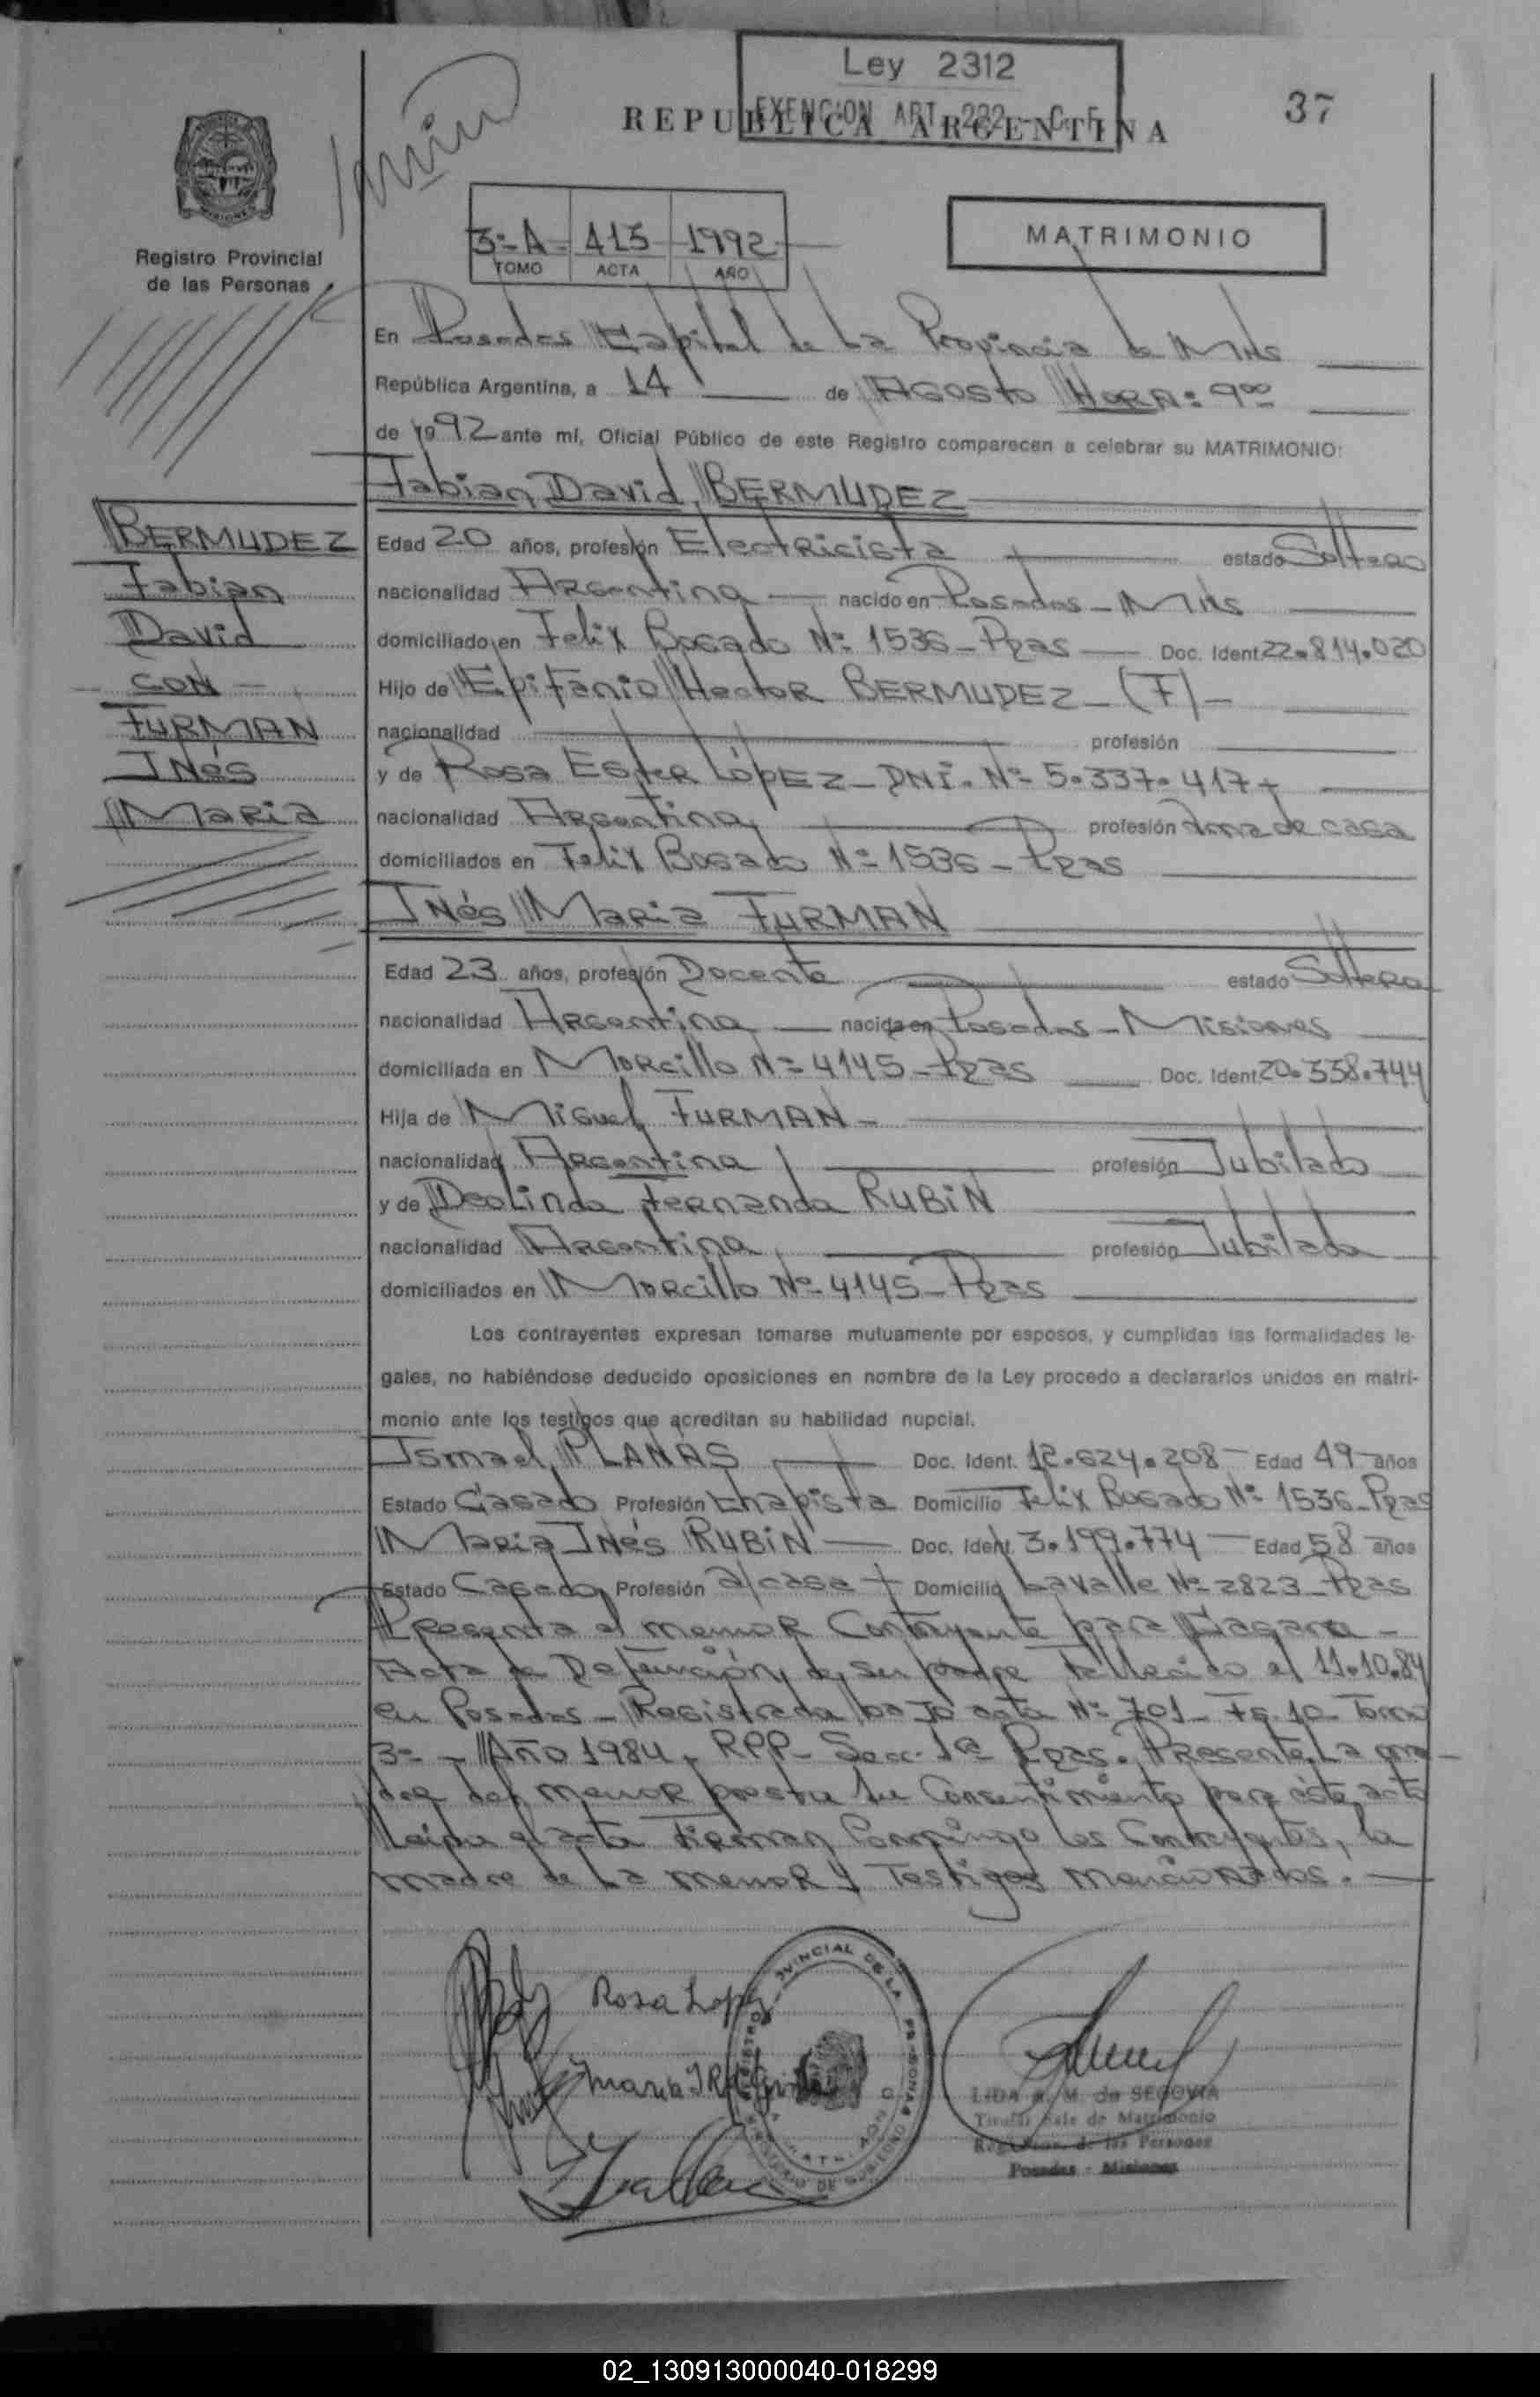 Ley 2312
EXENCION ART. 222 - C. F.
REPUBLICA ARGENTINA
37
Registro Provincial
de las Personas
3º-A- 415 1992
TOMO ACTA AÑO
MATRIMONIO
En Posadas Capital de La Provincia de Mnes
República Argentina, a 14 de Agosto Hora: 9⁰⁰
de 1992 ante mí, Oficial Público de este Registro comparecen a celebrar su MATRIMONIO:
Fabian David BERMUDEZ
BERMUDEZ
Fabian
David
CON
FURMAN
Inés
Maria
Edad 20 años, profesión Electricista estado Soltero
nacionalidad Argentina nacido en Posadas - Mnes
domiciliado en Felix Bogado Nº 1536 - Pdas Doc. Ident. 22.814.020
Hijo de Epifanio Hector BERMUDEZ - (F) -
nacionalidad profesión
y de Rosa Ester López - DNI. Nº 5.337.417
nacionalidad Argentina profesión Ama de casa
domiciliados en Felix Bogado Nº 1536 - Pdas
Inés Maria FURMAN
Edad 23 años, profesión Docente estado Soltera
nacionalidad Argentina nacida en Posadas - Misiones
domiciliada en Morcillo Nº 4145 - Pdas Doc. Ident. 20.338.744
Hija de Miguel FURMAN -
nacionalidad Argentina profesión Jubilado
y de Deolinda Fernanda RUBIN
nacionalidad Argentina profesión Jubilada
domiciliados en Morcillo Nº 4145 - Pdas
Los contrayentes expresan tomarse mutuamente por esposos, y cumplidas las formalidades le-
gales, no habiéndose deducido oposiciones en nombre de la Ley procedo a declararlos unidos en matri-
monio ante los testigos que acreditan su habilidad nupcial.
Ismael PLANAS Doc. Ident. 12.624.208 Edad 49 años
Estado Casado Profesión Chapista Domicilio Felix Bogado Nº 1536 - Pdas
Maria Inés RUBIN Doc. Ident. 3.199.774 Edad 58 años
Estado Casada Profesión a/casa Domicilio Lavalle Nº 2823 - Pdas
Presenta el menor Contrayente para Casarse -
Acta de Defunción de su padre fallecido el 11.10.84
en Posadas - Registrada bajo acta Nº 701 - Fº. 10 - Tomo
3º - Año 1984, RPP - Secc. 1ª Pdas. Presente La ma-
dre del menor presta su Consentimiento para este acto
Leída el acta Firman Conmigo los Contrayentes, la
madre de La menor y Testigos mencionados.
Rosa Lopez
LIDA A. M. de SEGOVIA
Titular Sala de Matrimonio
de las Personas
Posadas - Misiones
02_130913000040-018299